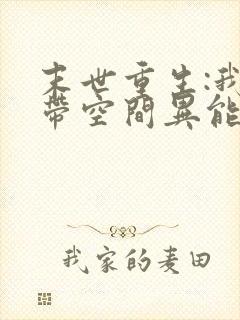 末世重生:我
帶空間異能
我家的麦田